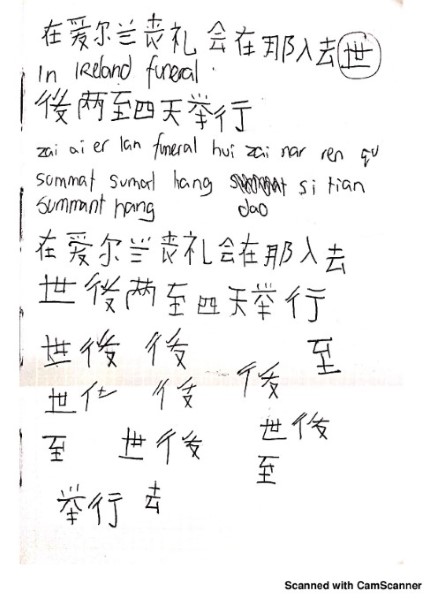 在爱尔兰丧礼会在那人去世
In IReland funeral
後两至四天举行
zai ai er lan funeral hui zai nar ren qu
summat sumat hang si tian
summant hang dao
在爱尔兰丧礼会在那人去
世後两至四天举行
世後 後 至
世 後 後
至 世後 世後
至
举行 去
Scanned with CamScanner